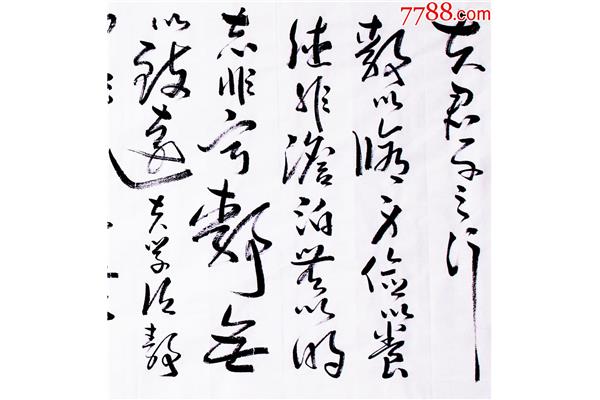 7788.com
夫君子之行
靜以脩身儉以養
德非澹泊無以明
志非寧靜無
以致遠夫學須靜